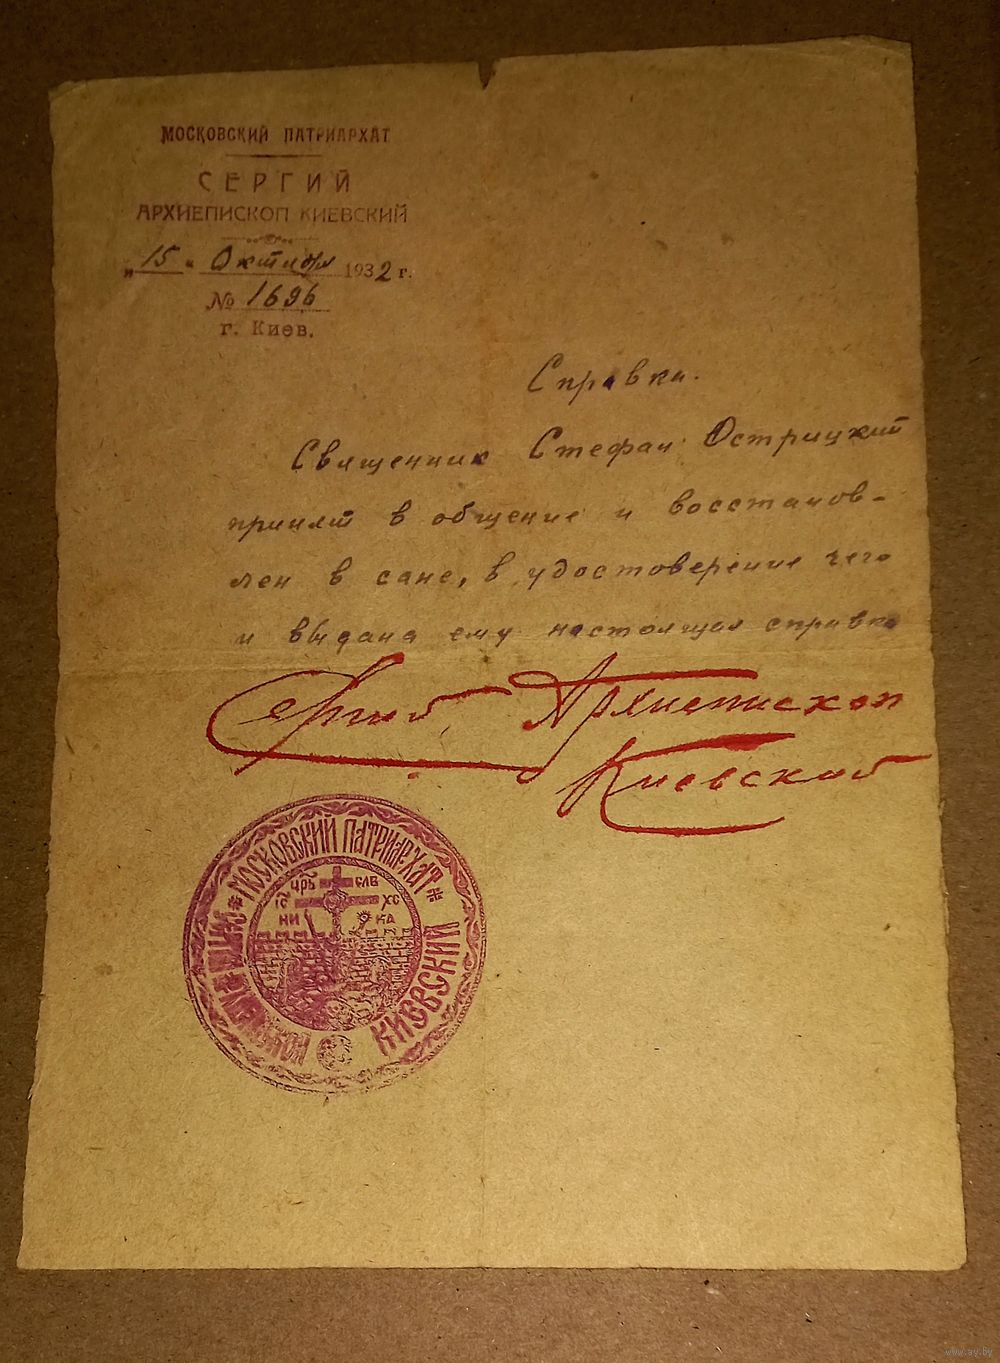 МОСКОВСКИЙ ПАТРИАРХАТ
СЕРГИЙ
АРХИЕПИСКОП КИЕВСКИЙ
"15" Октября 1932 г.
№ 1696
г. Киев.
Справка.
Священник Стефан Острицкий
принят в общение и восстанов-
лен в сане, в удостоверение чего
и выдана ему настоящая справка
Сергий Архиепископ
Киевский
МОСКОВСКИЙ ПАТРИАРХАТ
КИЕВСКИЙ
ЦРЬ СЛВ
ІС ХС
НИ КА
www.ay.by